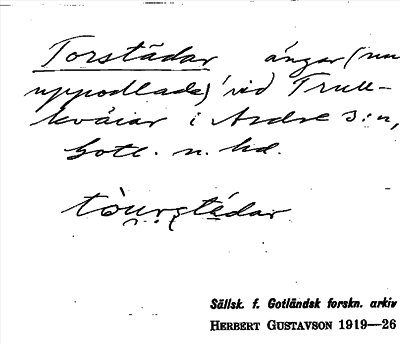 Torstädar ängar (nu
uppodlade) vid Trull-
kväiar i Ardre s:n,
Gotl. n. hd.
tòurstédar
Sällsk. f. Gotländsk forskn. arkiv
HERBERT GUSTAVSON 1919—26